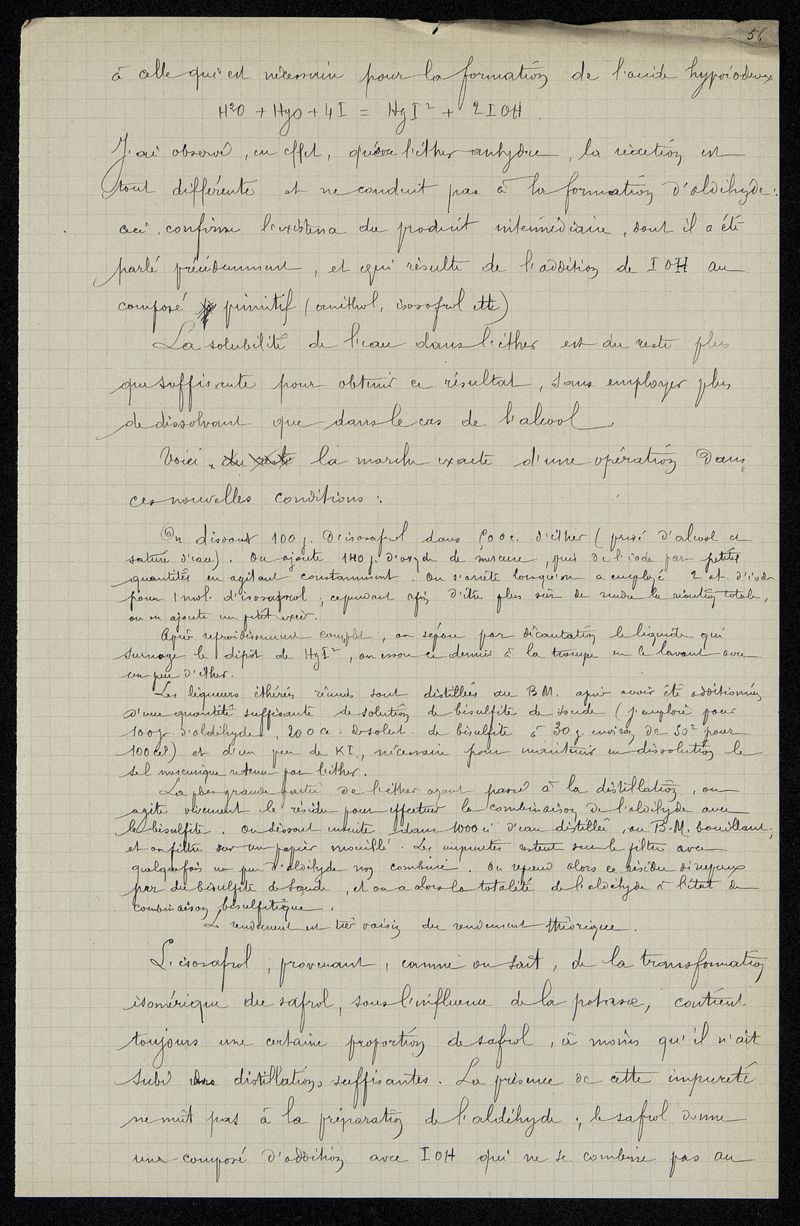 56
à celle qui est nécessaire pour la formation de l'acide hypoiodeux
H²O + HgO + 4I = HgI² + 2IOH
J'ai observé, en effet, que l'éther anhydre, la réaction est
tout différente et ne conduit pas à la formation d'aldéhyde :
ceci, confirme l'existence du produit intermédiaire, dont il a été
parlé précédemment, et qui résulte de l'addition de IOH au
composé primitif (anéthol, isosafrol etc)
La solubilité de l'eau dans l'éther est du reste plus
que suffisante pour obtenir ce résultat, sans employer plus
de dissolvant que dans le cas de l'alcool.
Voici du reste la marche exacte d'une opération dans
ces nouvelles conditions :
On dissout 100 g. d'isosafrol dans d'éther (privé d'alcool et
saturé d'eau). On ajoute 140 g. d'oxyde de mercure, puis de l'iode par petites
quantités en agitant constamment. On s'arrête lorsqu'on a employé 2 at. d'iode
pour 1 mol. d'isosafrol ; cependant afin d'être plus sûr de rendre la réaction totale,
on en ajoute un petit excès.
Après refroidissement complet, on sépare par décantation le liquide qui
surnage le dépôt de HgI², on essore ce dernier à la trompe en le lavant avec
un peu d'éther.
Les liqueurs éthérées réunies sont distillées au B.M. après avoir été additionnées
d'une quantité suffisante de solution de bisulfite de soude (j'emploie pour
100 gr d'aldéhyde, 200 cc. de solut. de bisulfite à 30 g. environ de SO² pour
100 cc) et d'un peu de KI, nécessaire pour maintenir en dissolution le
sel mercurique retenu par l'éther.
La plus grande partie de l'éther ayant passé à la distillation, on
agite vivement le résidu pour effectuer la combinaison de l'aldéhyde avec
le bisulfite. On dissout ensuite dans 1000 cc d'eau distillée, au B.M. bouillant,
et on filtre sur un papier mouillé. Les impuretés restent sur le filtre avec
quelquefois un peu d'aldéhyde non combiné. On reprend alors ce résidu
par du bisulfite de soude, et on a alors la totalité de l'aldéhyde à l'état de
combinaison bisulfitique.
Le rendement est très voisin du rendement théorique.
L'isosafrol, provenant, comme on sait, de la transformation
isomérique du safrol, sous l'influence de la potasse, contient
toujours une certaine proportion de safrol, à moins qu'il n'ait
subi des distillations suffisantes. La présence de cette impureté
ne nuit pas à la préparation de l'aldéhyde ; le safrol donne
un composé d'addition avec IOH qui ne se combine pas au